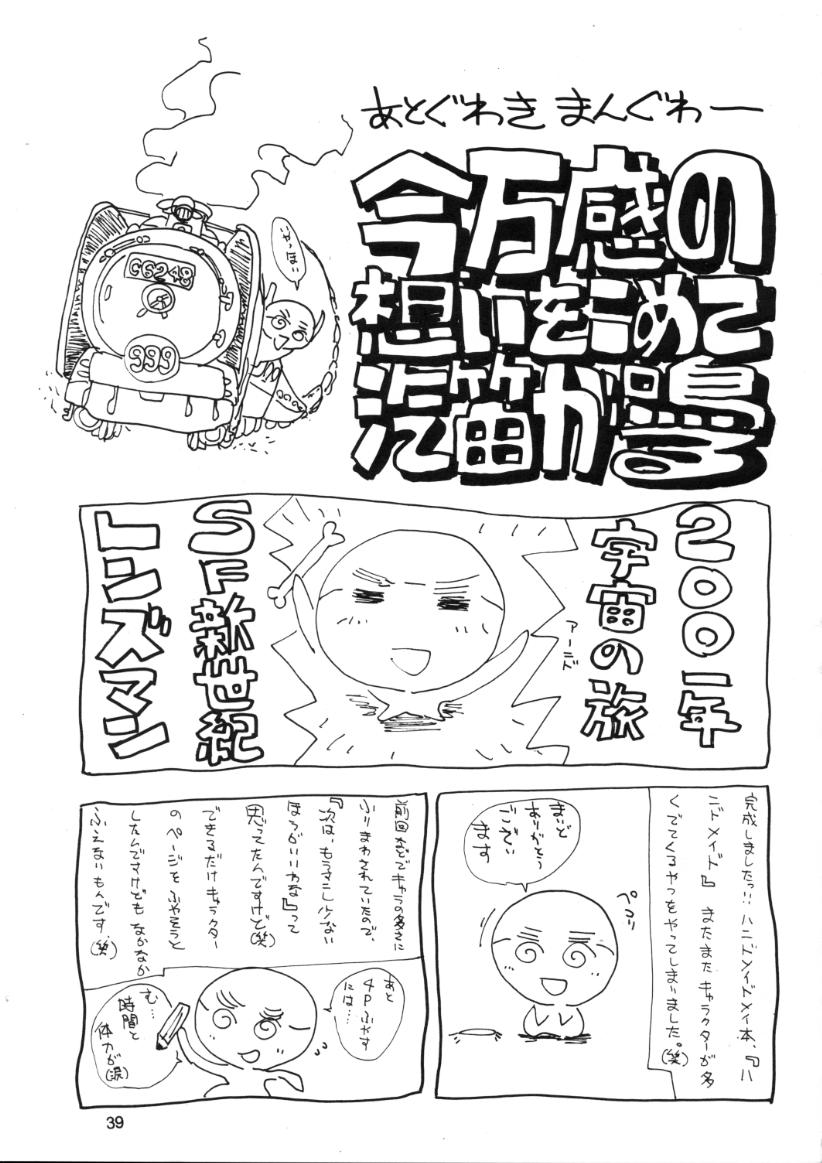 あとぐわき まんぐわー
今万感の
想いをこめて
汽笛が鳴る
いやっほい
C6248
999
2001年
宇宙の旅
アーニド
SF新世紀
レンズマン
完成しましたっ!! ハニドメイドメイ本、『ハ
ニドメイド』 またまたキャラクターが多
くでてくるやつをやってしまいました。(笑)
まいど
ありがとう
ござい
ます
ペコリ
前回までキャラの多さに
ふりまわされていたので、
『次は、もうマニし少ない
ほうがいいわな』って
思ってたんですけど(笑)
できるだけキャラクター
のページをふやそうと
したんですけども なかなか
ふえないもんです(笑)
あと
4Pふやす
には…
む…
時間と
体力が
(涙)
39